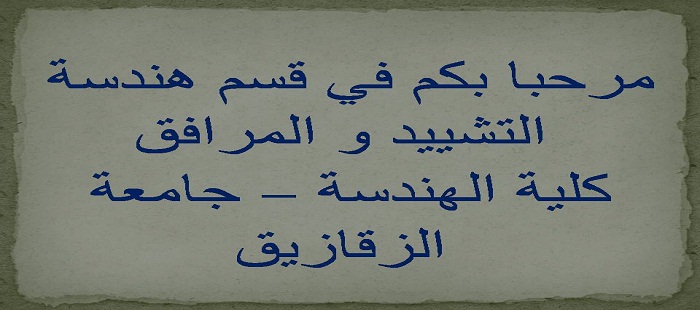 مرحبا بكم في قسم هندسة
التشييد و المرافق
كلية الهندسة – جامعة
الزقازيق